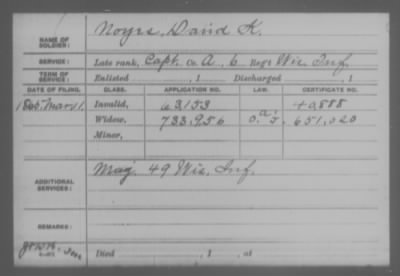 NAME OF SOLDIER: Noyes, David K.
SERVICE: Late rank, Capt. Co. A, 6 Reg't Wis. Inf.
TERM OF SERVICE: Enlisted , 1 Discharged , 1
DATE OF FILING. CLASS. APPLICATION NO. LAW. CERTIFICATE NO.
1865, Mar 11, Invalid, 63,153 40,888
Widow, 733,956 651,020
Minor,
ADDITIONAL SERVICES: Maj 49 Wis. Inf.
REMARKS:
Died , 1 , at